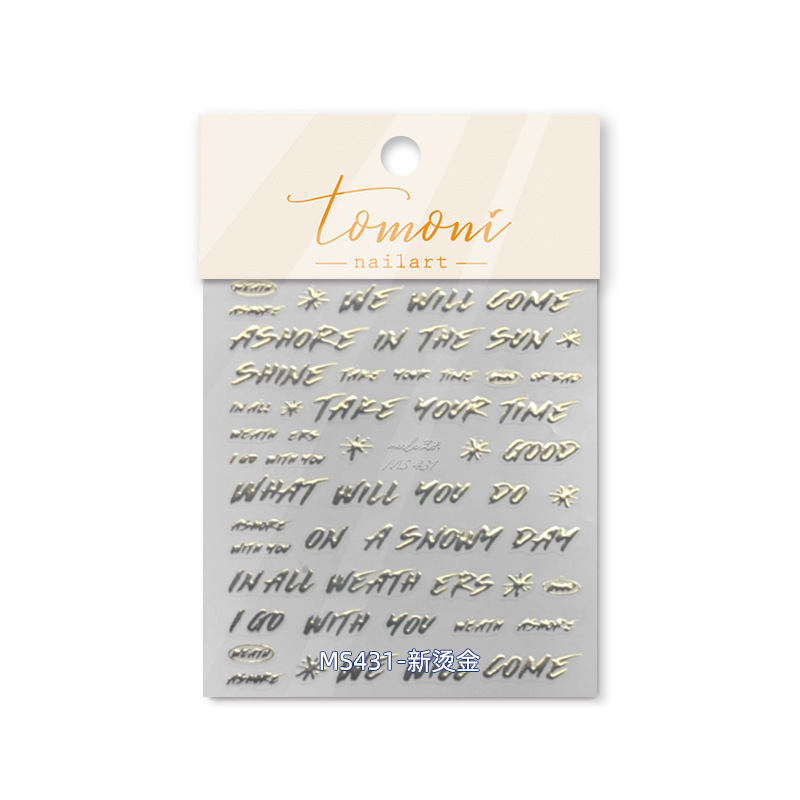 tomoni
nailart
WEATH
ASHORE
* WE WILL COME
ASHORE IN THE SUN *
SHINE TAKE YOUR TIME GOOD OR BAD
IN ALL * TAKE YOUR TIME
WEATH ERS
I GO WITH YOU
* MS 431 * GOOD
WHAT WILL YOU DO *
ASHORE
WITH YOU
ON A SNOWY DAY
IN ALL WEATH ERS *
I GO WITH YOU WEATH ASHORE
WEATH
ASHORE
* WE WILL COME
MS431-新烫金